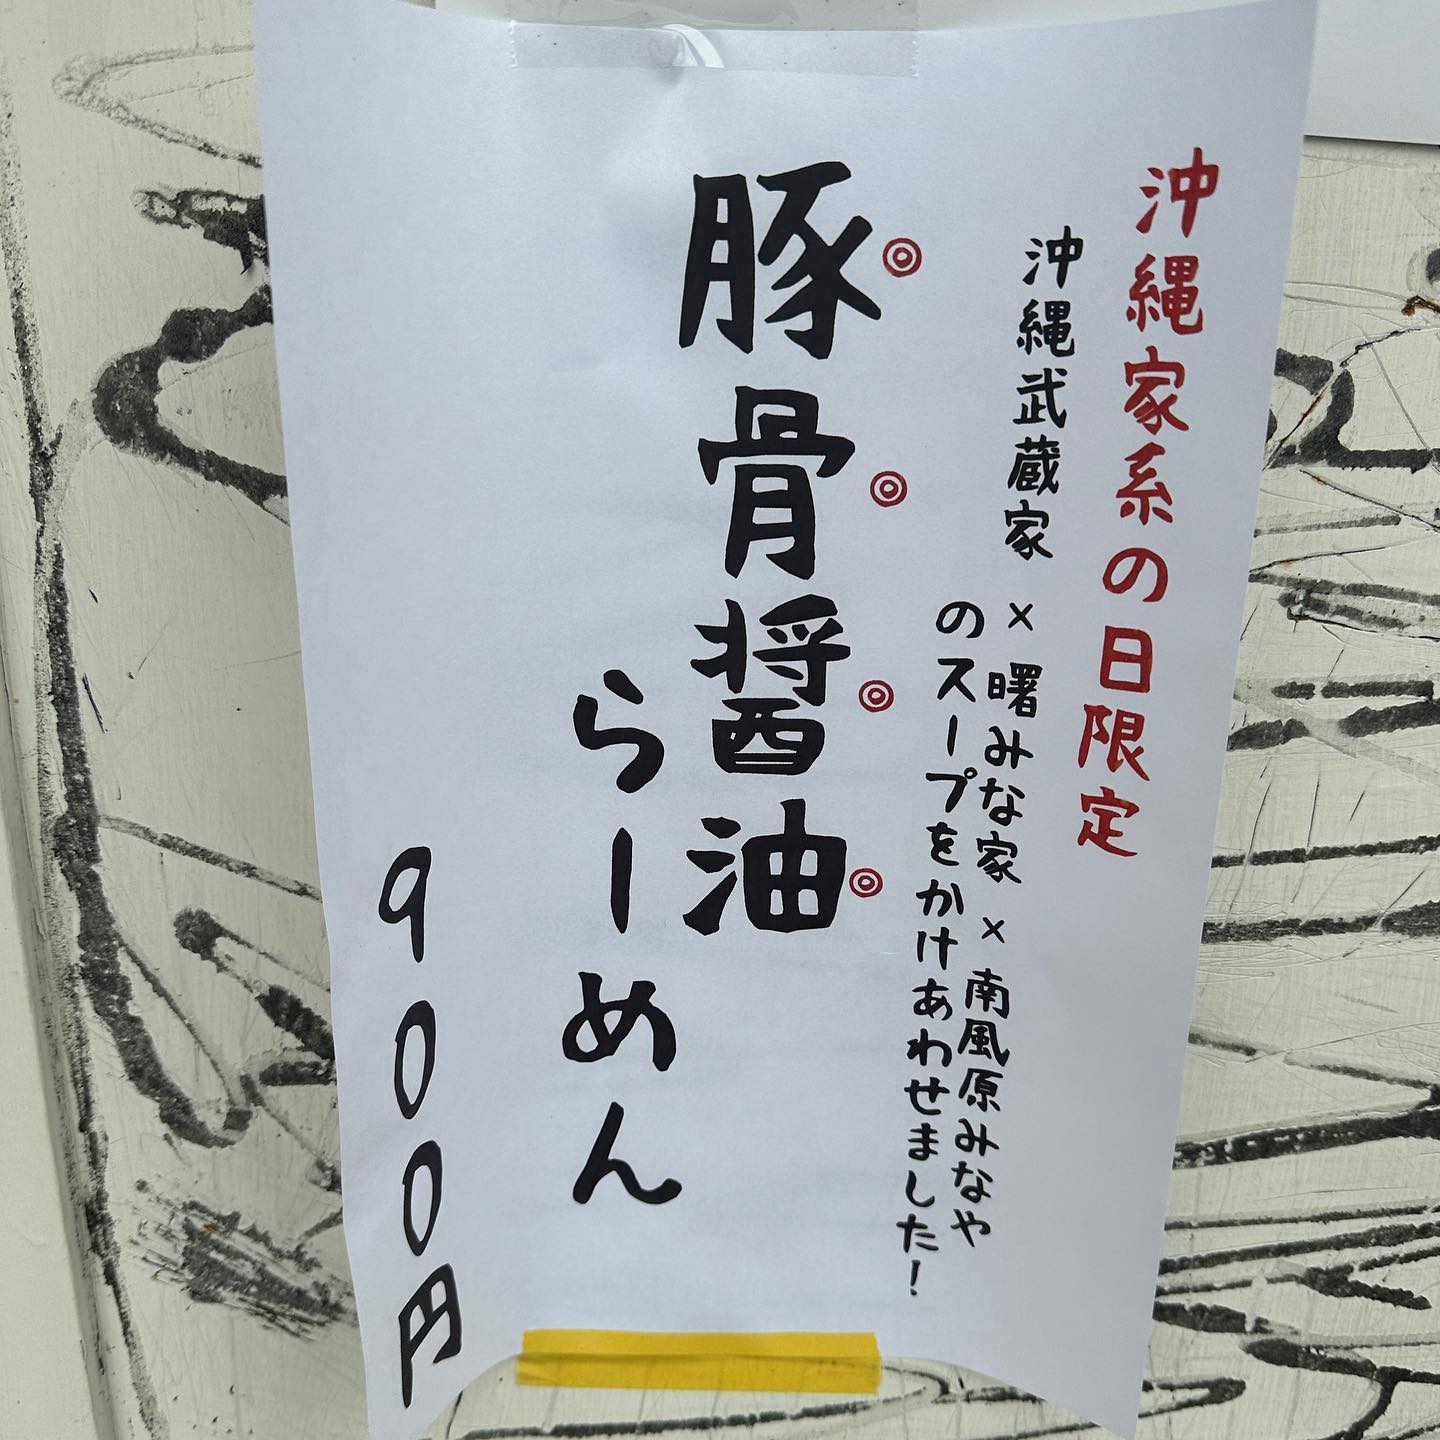 沖縄家系の日限定
沖縄武蔵家×曙みな家×南風原みなや
のスープをかけあわせました!
豚骨醤油
らーめん
900円